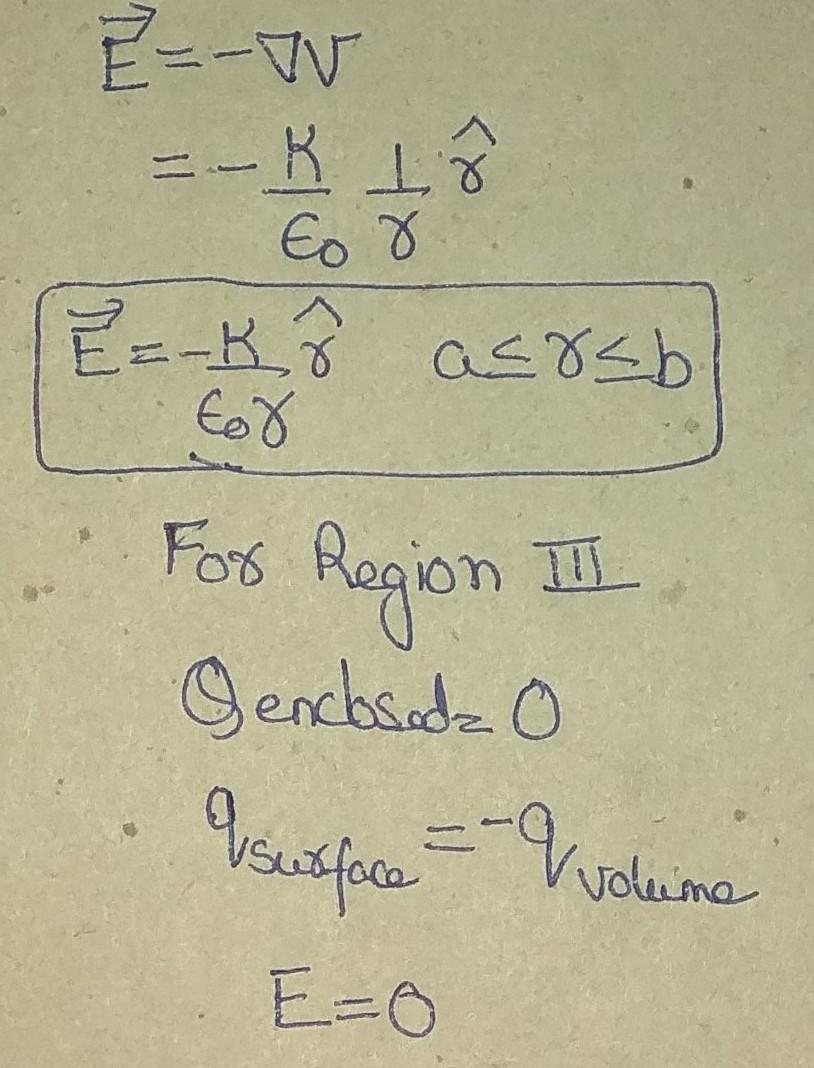 E⃗ = -∇V
= - K/ε₀ 1/r r̂
E⃗ = - K/ε₀r r̂   a ≤ r ≤ b
For Region III
Qenclosed = 0
qsurface = -qvolume
E = 0